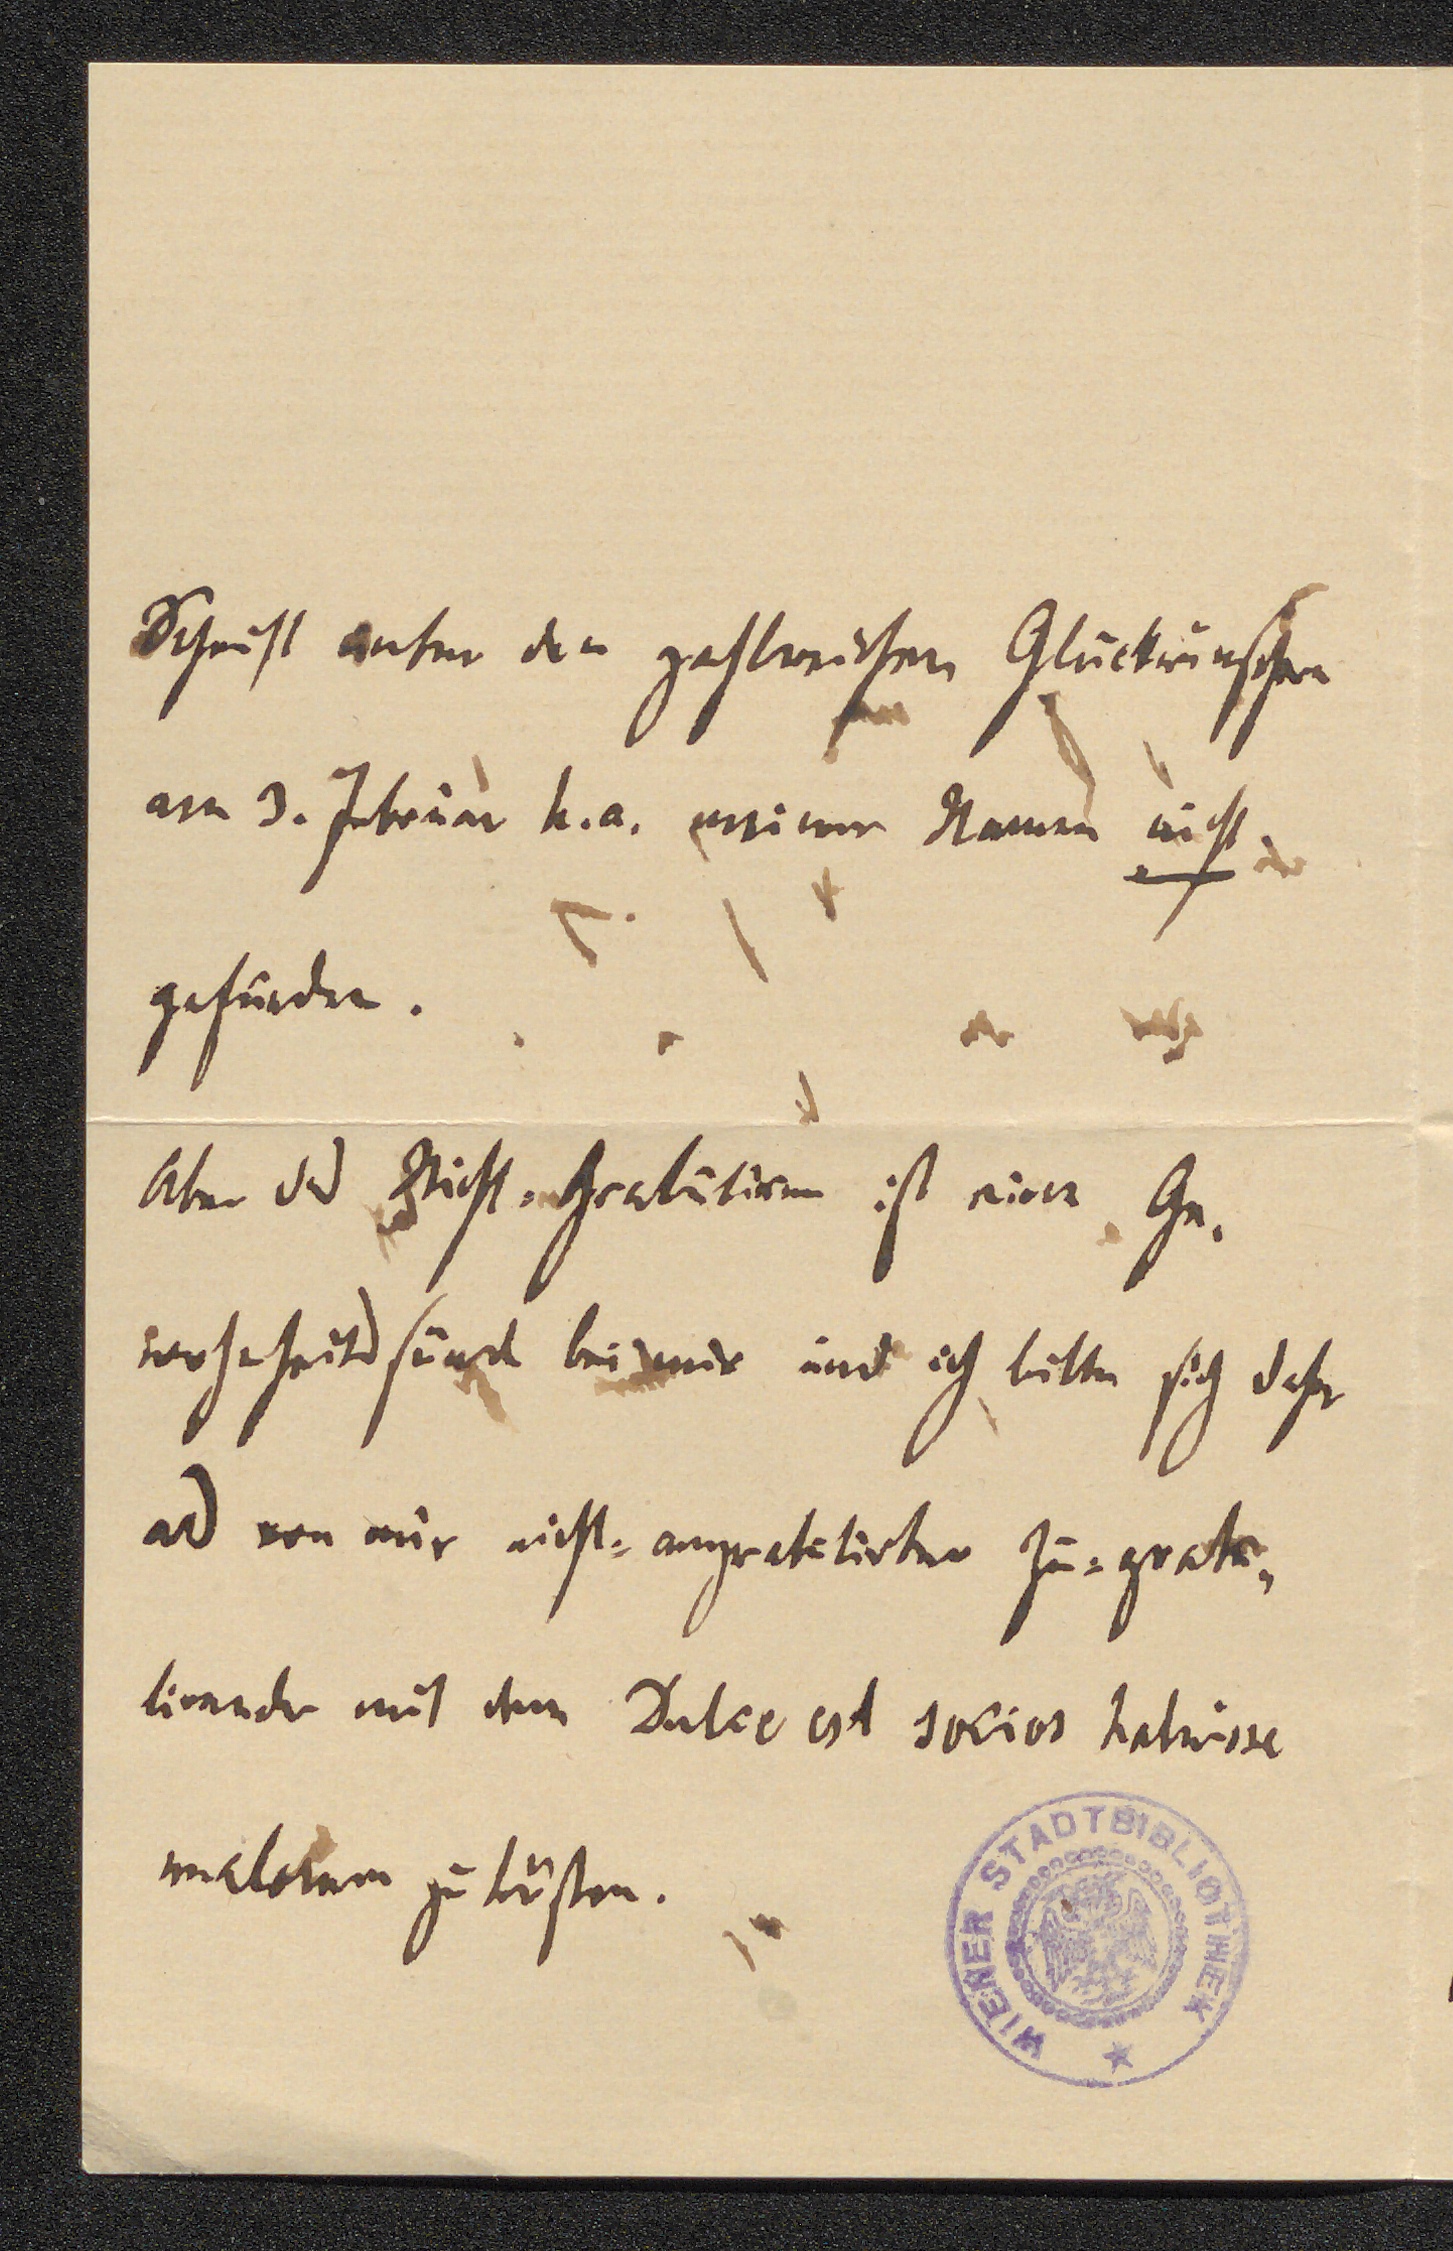 unter den zahlreichen Glückwünschen
am 3. Februar h.a. meinen Namen nicht
gefunden.
Aber das Nicht-Gratuliren ist eine Ge-
wohnheitssünde bei mir und ich bitte sich daher
als von mir nicht-angratulirter Zu-gratu-
lirender mit dem Dulce est socios habuisse
malorum zu trösten.
WIENER STADTBIBLIOTHEK